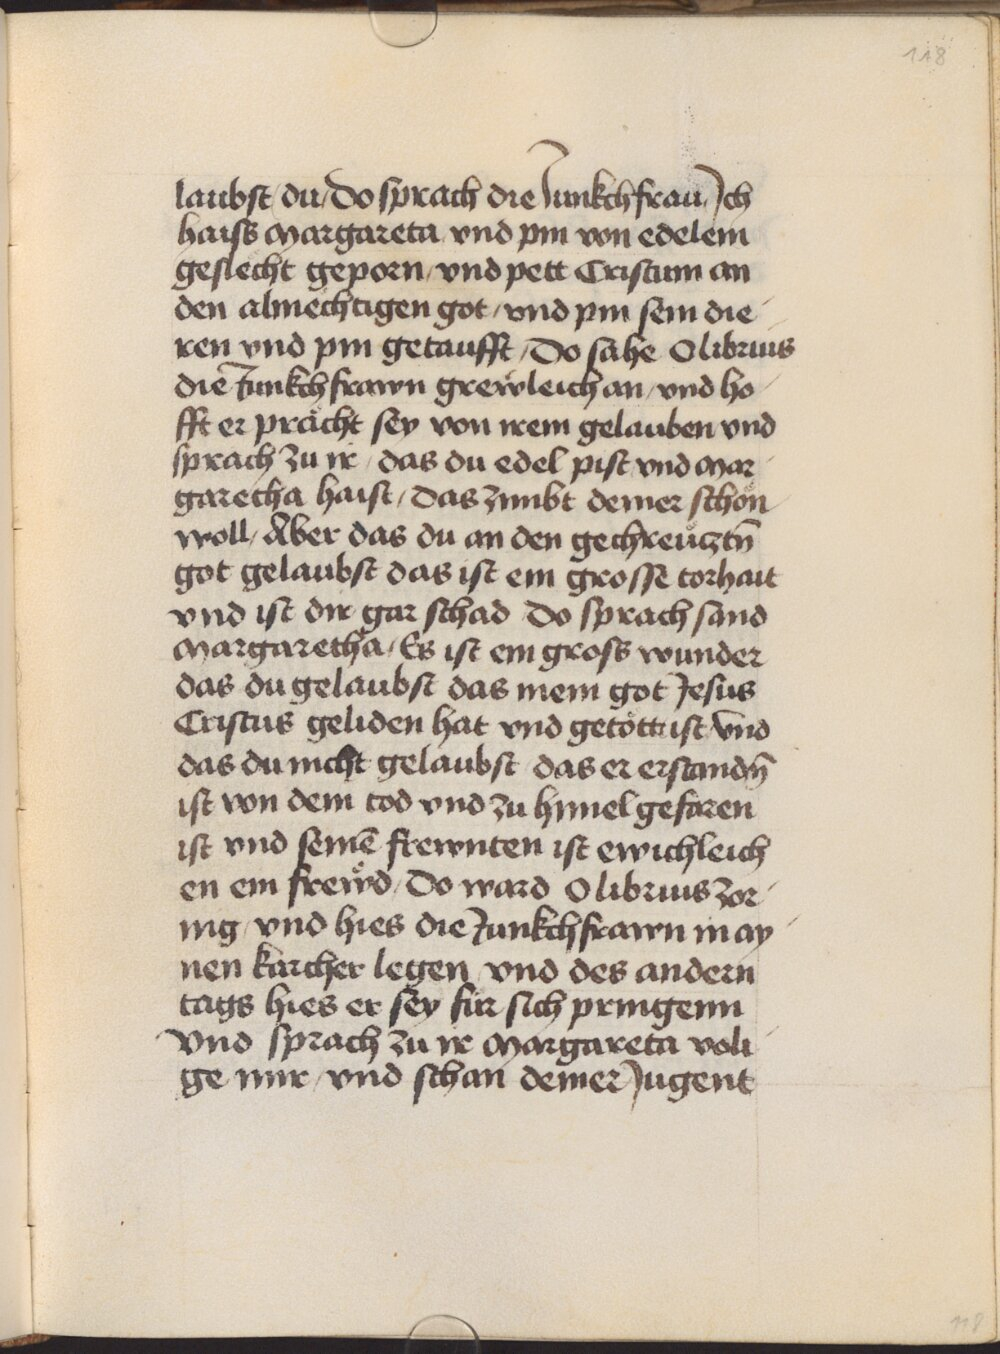 118
laubst / du / Do sprach die Junkchfrau / Ich
haiss Margareta vnd pin von edelem
geslecht geporn / vnd pett Cristum an
den almechtigen got / vnd pin sein die-
ren vnd pin getaufft / Do sahe Olibrius
die Junkchfrawn grewleich an / vnd ho-
fft er prächt sey von irem gelauben vnd
sprach zu ir / das du edel pist vnd Mar-
garetha haist / Das zimbt deiner schön
woll / Aber das du an den gechreücztn̄
got gelaubst das ist ein grosse torhait
vnd ist dir gar schad Do sprach sand
Margaretha / Es ist ein gross wunder
das du gelaubst das mein got Jesus
Cristus geliden hat vnd getött ist / vnd
das du nicht gelaubst das er erstandn̄
ist von dem tod vnd zu himel gefaren
ist vnd seinē frewnten ist ewichleich
en ein frewd / Do ward Olibrius zor-
nig / vnd hies die Junkchfrawn in ay-
nen kärcher legen / vnd des andern
tags hies er sey für sich pringenn
Vnd sprach zu ir Margareta voli-
ge mir / vnd schan deiner Jugent
118